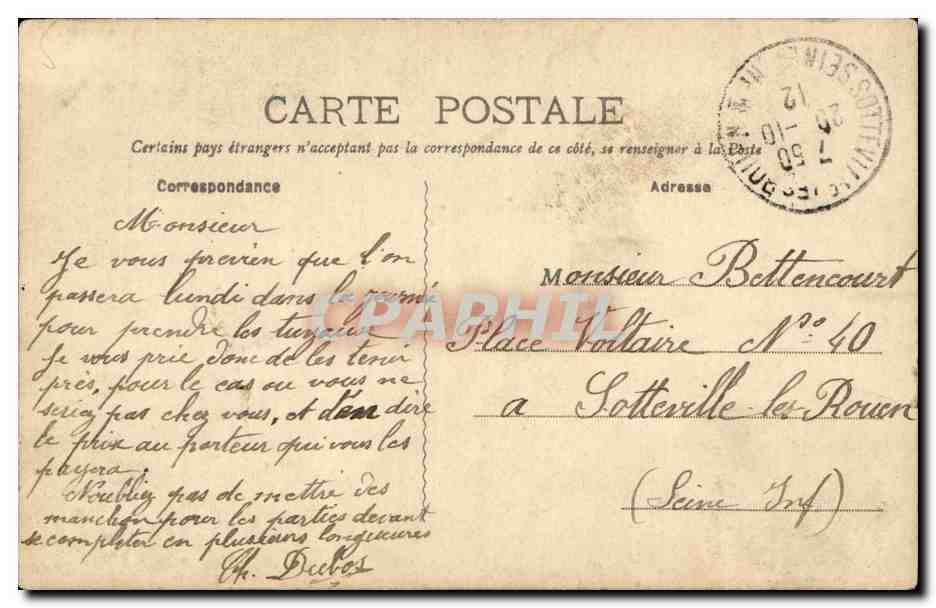 CARTE POSTALE
Certains pays étrangers n'acceptant pas la correspondance de ce côté, se renseigner à la Poste
Correspondance
Monsieur
Je vous previen que l'on
passera lundi dans la journé
pour prendre les tuyaux
Je vous prie donc de les tenir
près, pour le cas ou vous ne
seriez pas chez vous, et d'en dire
le prix au porteur qui vous les
payera.
Noubliez pas de mettre des
manchon pour les parties devant
se completer en plusieurs longueures
Ch. Dubos
Adresse
Monsieur Bettencourt
Place Voltaire No. 40
a Sotteville-les-Rouen
(Seine Inf)
SOTTEVILLE-LES-ROUEN
SEINE INFRE
7 50
20 -10
12
CPAPHIL